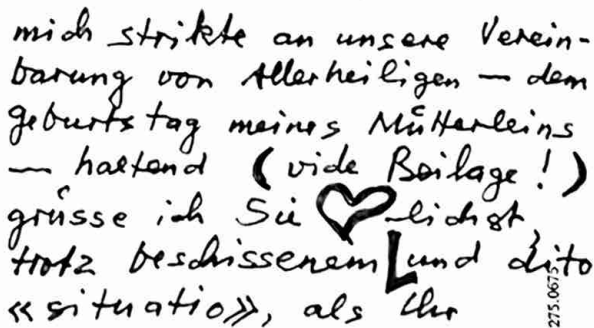 mich strikte an unsere Verein-
barung von Allerheiligen — dem
geburtstag meines Mütterleins
— haltend (vide Beilage!)
grüsse ich Sie ♥lichst,
trotz beschissenem L und dito
«situatio», als Ihr
275.0675